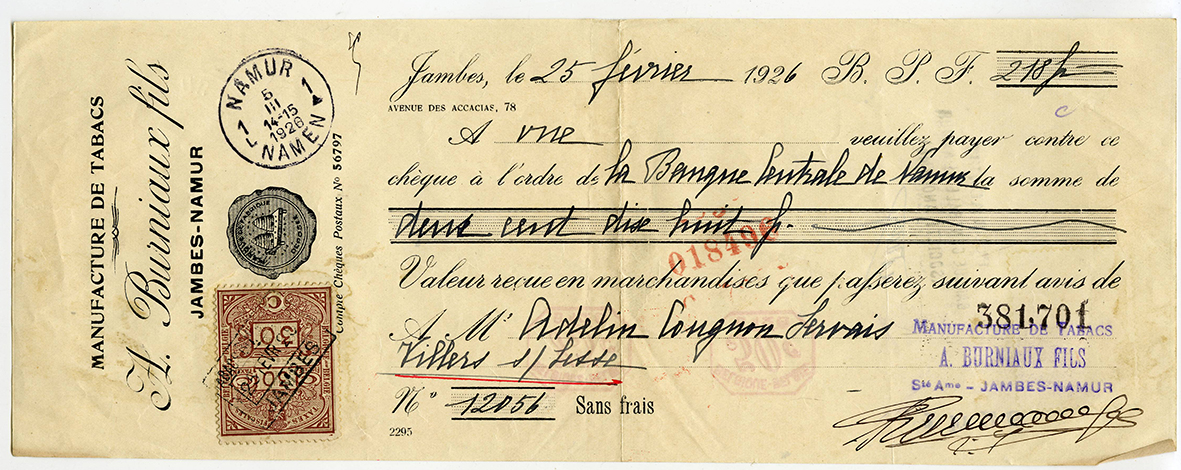 MANUFACTURE DE TABACS
A. Burniaux fils
JAMBES-NAMUR
NAMUR
1 1
5
III
14-15
1926
NAMEN
Compte Chèques Postaux No 56797
Jambes, le 25 février 1926 B. P. F. 218 f
AVENUE DES ACCACIAS, 78
A vue veuillez payer contre ce
chèque à l'ordre de la Banque Centrale de Namur la somme de
deux cent dix huit f.
018496
Valeur reçue en marchandises que passerez suivant avis de
381.701
A Mr Adelin Cougnon Servais
Villers s/ Lesse
MANUFACTURE DE TABACS
A. BURNIAUX FILS
Sté Ame - JAMBES-NAMUR
No 12056 Sans frais
2295
30
JAMBES